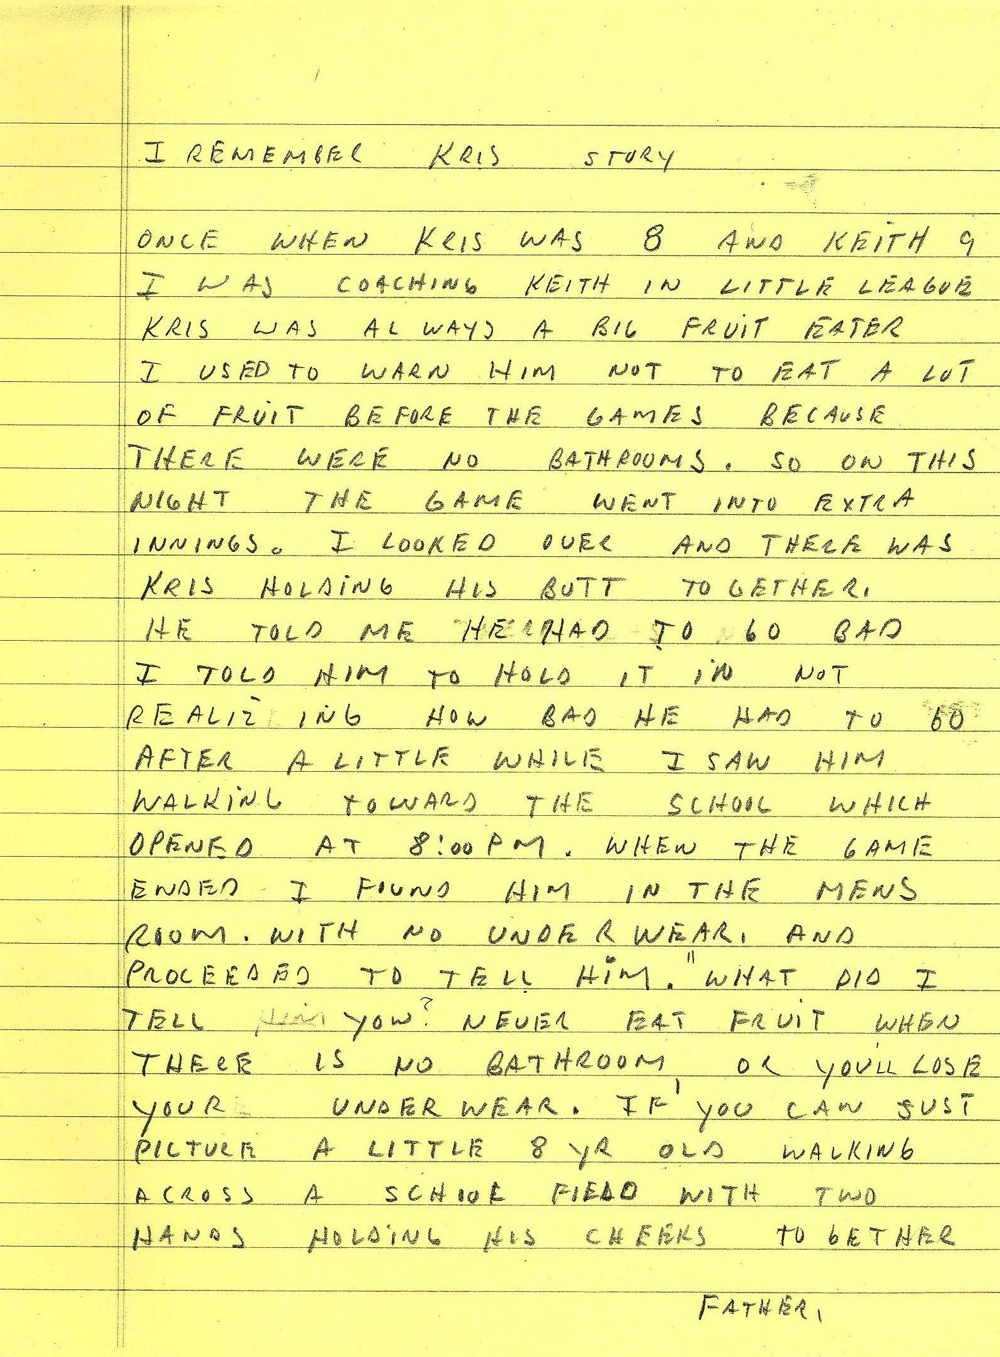 I REMEMBER KRIS STORY
ONCE WHEN KRIS WAS 8 AND KEITH 9
I WAS COACHING KEITH IN LITTLE LEAGUE
KRIS WAS ALWAYS A BIG FRUIT EATER
I USED TO WARN HIM NOT TO EAT A LOT
OF FRUIT BEFORE THE GAMES BECAUSE
THERE WERE NO BATHROOMS. SO ON THIS
NIGHT THE GAME WENT INTO EXTRA
INNINGS. I LOOKED OVER AND THERE WAS
KRIS HOLDING HIS BUTT TOGETHER.
HE TOLD ME HE HAD TO GO BAD
I TOLD HIM TO HOLD IT IN NOT
REALIZING HOW BAD HE HAD TO GO
AFTER A LITTLE WHILE I SAW HIM
WALKING TOWARD THE SCHOOL WHICH
OPENED AT 8:00 PM. WHEN THE GAME
ENDED I FOUND HIM IN THE MENS
ROOM. WITH NO UNDERWEAR, AND
PROCEEDED TO TELL HIM. "WHAT DID I
TELL YOU? NEVER EAT FRUIT WHEN
THERE IS NO BATHROOM OR YOU'LL LOSE
YOUR UNDERWEAR. IF YOU CAN JUST
PICTURE A LITTLE 8 YR OLD WALKING
ACROSS A SCHOOL FIELD WITH TWO
HANDS HOLDING HIS CHEEKS TOGETHER
FATHER,